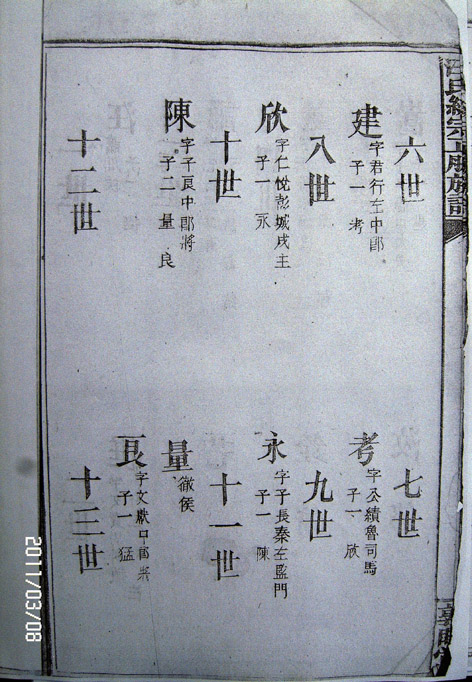 汪氏統宗正脈族譜
六世
建 字君行左中郎
子一 考
七世
考 字公績魯司馬
子一 欣
八世
欣 字仁悅彭城戍主
子一 永
九世
永 字子長秦左監門
子一 陳
十世
陳 字子良中郎將
子二 量 良
十一世
量 徹侯
良 字文猷中郎將
子一 猛
十二世
十三世
2011/03/08